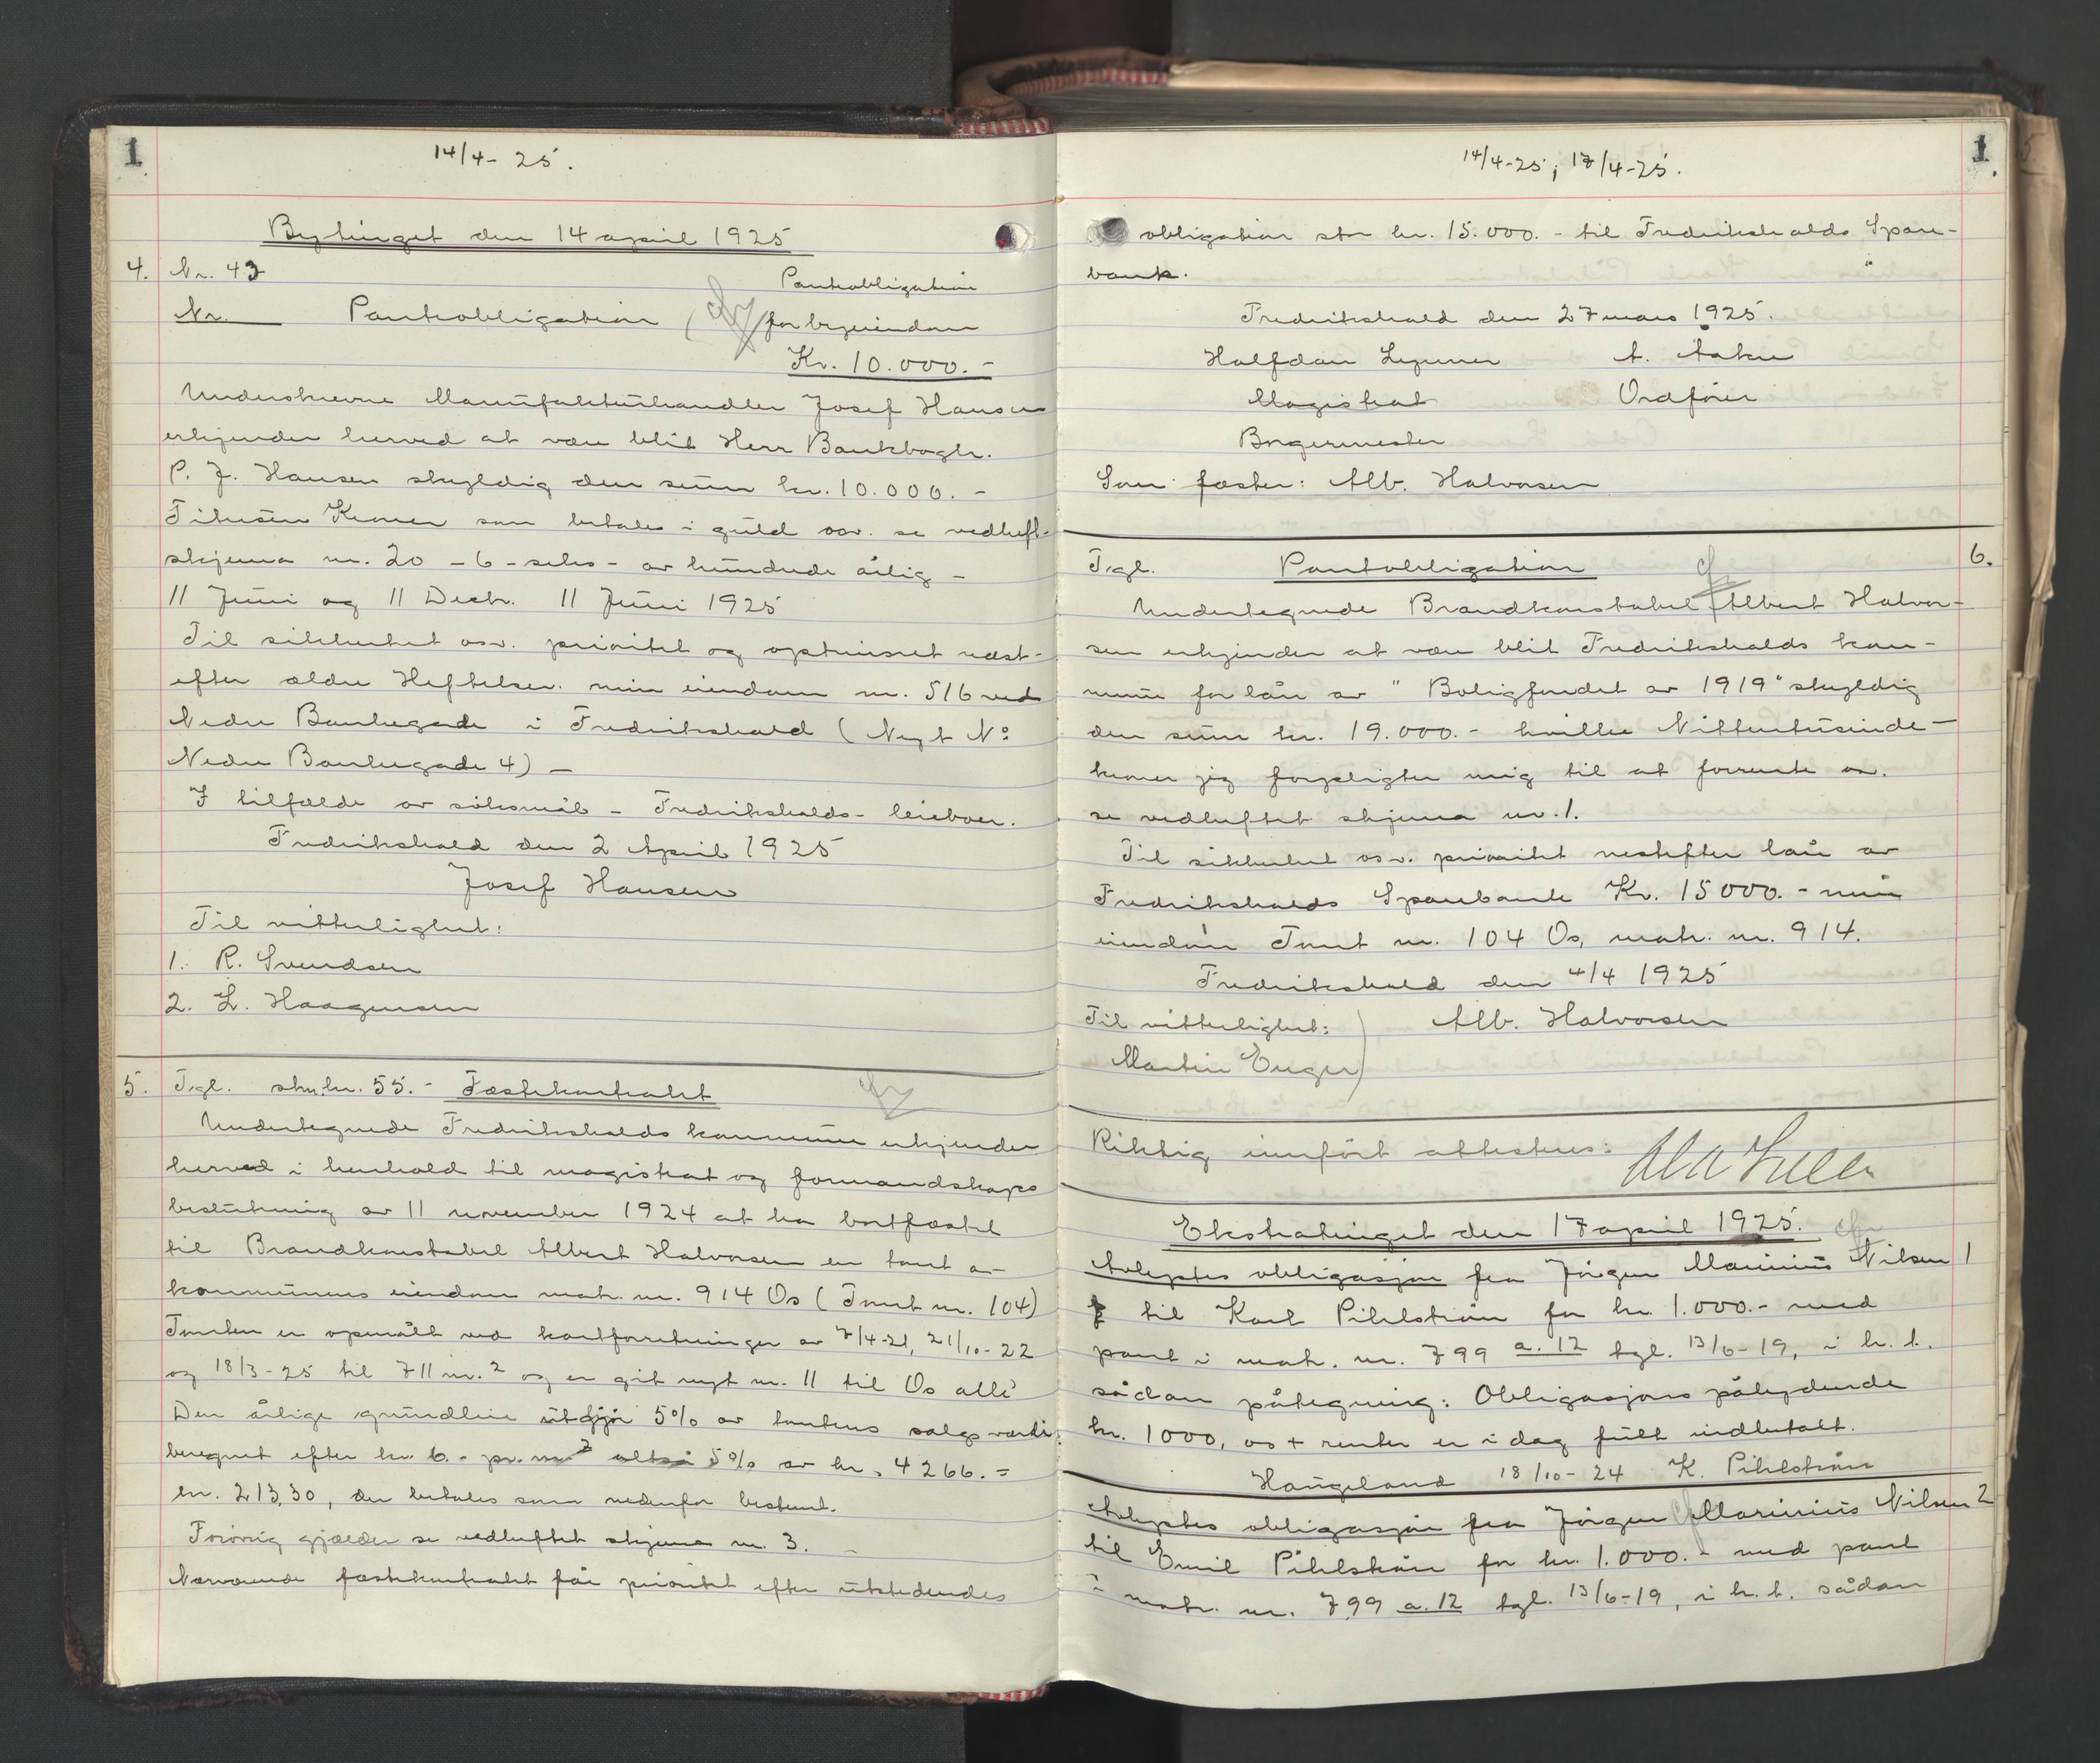 1
14/4- 25.
Bytinget den 14 april 1925
4. Nr. 43
Pantobligation
Nr. Pantobligation for byeiendom
Kr. 10.000.-
Underskrevne Manufakturhandler Josef Hansen
erkjender herved at være blit Herr Bankbogh.
P. J. Hansen skyldig den sum kr. 10.000.-
Titusen Kroner som betales i guld osv. se vedheft-
skjema nr. 20 - 6 - seks - av hundrede årlig -
11 Juni og 11 Decbr. 11 Juni 1925
Til sikkerhet osv. prioritet og optrinsret næst-
efter ældre Heftelser. min eiendom nr. 516 ved
Nedre Bankegade i Fredrikshald (Nyt No
Nedre Bankegade 4) -
I tilfælde av söksmål - Fredrikshalds- leieboer.
Fredrikshald den 2 April 1925
Josef Hansen
Til vitterlighet:
1. R. Svendsen
2. L. Haagensen
5. Tgl. skm. kr. 55.- Fæstekontrakt
Undertegnede Fredrikshalds kommune erkjender
herved i henhold til magistrat og formandskaps
beslutning av 11 november 1924 at ha bortfæstet
til Brandkonstabel Albert Halvorsen en tomt av
kommunens eiendom matr. nr. 914 Os (Tomt nr. 104)
Tomten er opmålt ved kartforretninger av 7/4-21, 21/10-22
og 18/3-25 til 711 m.2 og er git nyt nr. 11 til Os allé
Den årlige grundleie utgjör 5% av tomtens salgsværdi
beregnet efter kr. 6.- pr. m2 altså 5% av kr. 4266.=
kr. 213,30, der betales som nedenfor bestemt.
Forövrig gjælder se vedheftet skjema nr. 3.
Nærværende fæstekontrakt får prioritet efter utstedendes
14/4-25; 17/4-25.
1.
obligation stor kr. 15.000.- til Fredrikshalds Spare-
bank.
Fredrikshald den 27 mars 1925.
Halfdan A.
Magistrat Ordförer
Borgermester
Som fæster: Alb. Halvorsen
Tgl. Pantobligation 6.
Undertegnede Brandkonstabel Albert Halvor-
sen erkjender at være blit Fredrikshalds kom-
mune for lån av "Boligfondet av 1919" skyldig
den sum kr. 19.000.- hvilke Nittentusinde-
kroner jeg forpligter mig til at forrente os.
se vedheftet skjema nr. 1.
Til sikkerhet osv. prioritet nestefter lån av
Fredrikshalds Sparebank Kr. 15000.- min
eiendom Tomt nr. 104 Os, matr. nr. 914.
Fredrikshald den 4/4 1925
Til vitterlighet: Alb. Halvorsen
Martin Enger
Riktig innfört attesteres:
Ekstratinget den 17 april 1925.
Avlystes obligasjon fra Jörgen Marinius Nilsen 1
til Karl Pihlström for kr. 1.000.- med
pant i matr. nr. 799 a. 12 tgl. 13/6-19, i h. t.
sådan påtegning: Obligasjons pålydende
kr. 1000, os + renter er i dag fullt indbetalt.
Haugeland 18/10-24 K. Pihlström
Avlystes obligasjon fra Jörgen Marinius Nilsen 2
til Emil Pihlström for kr. 1.000.- med pant
i matr. nr. 799 a. 12 tgl. 13/6-19, i h. t. sådan